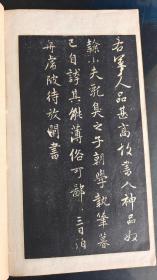 右军人品甚高故书入神品奴
隸小夫乳臭之子朝學執筆暮
已自誇其能薄俗可鄙三日泊
舟虎陂待放閘書